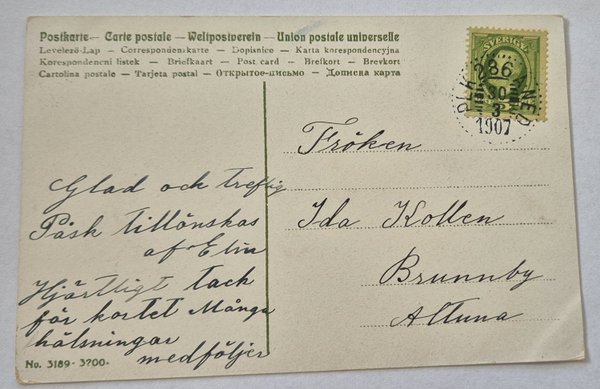 Postkarte — Carte postale — Weltpostverein — Union postale universelle
Levelező-Lap — Correspondenzkarte — Dopisnice — Karta korespondencyjna
Korespondencni listek — Briefkaart — Post card — Brefkort — Brevkort
Cartolina postale — Tarjeta postal — Открытое-письмо — Дописна карта
SVERIGE
PLK 286 NED
30
3
1907
Fröken
Ida Kollen
Brunnby
Altuna
Glad och treflig
Påsk tillönskas
af Elin
Hjärtligt tack
för kortet Många
hälsningar
medföljer
No. 3189-3200